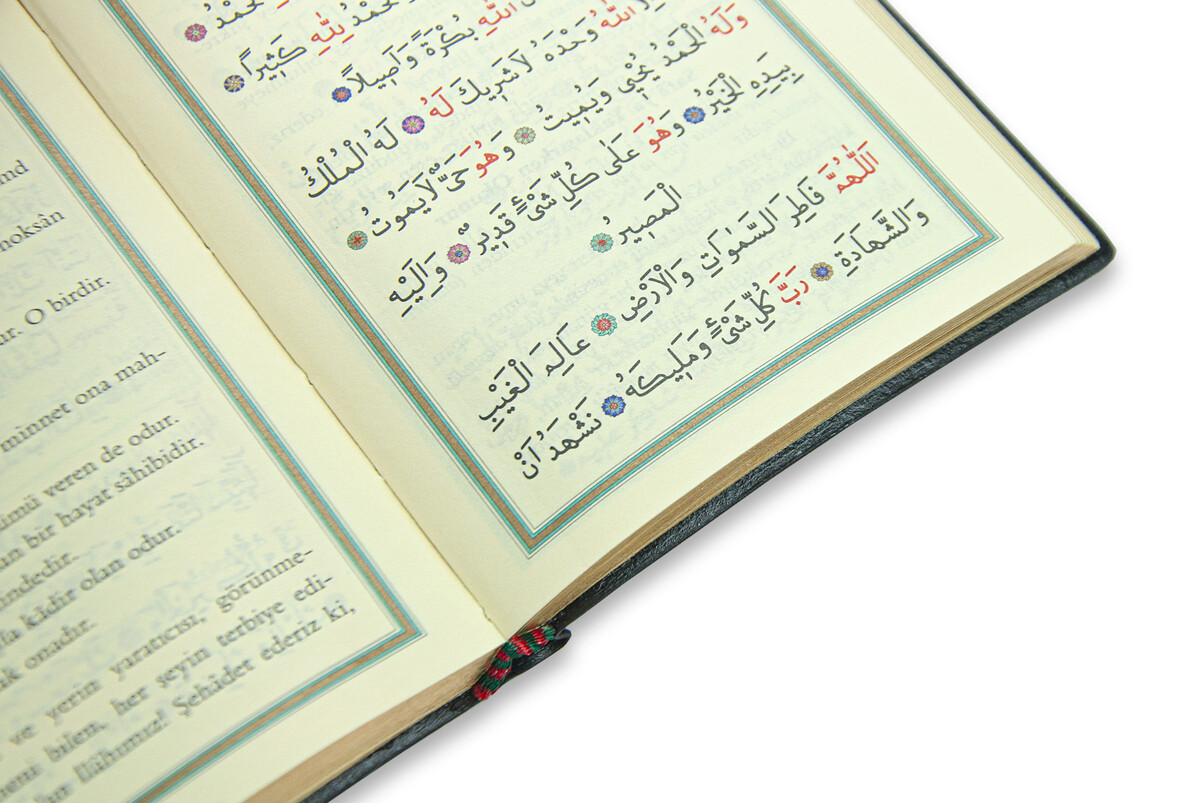 لْحَمْدُ لِلّٰهِ كَثِيرًا
اللّٰهِ بُكْرَةً وَاَصِيلًا
اللّٰهُ وَحْدَهُ لَا شَرِيكَ لَهُ لَهُ الْمُلْكُ
وَلَهُ الْحَمْدُ يُحْيٖي وَيُمٖيتُ وَهُوَ حَىٌّ لَا يَمُوتُ
بِيَدِهِ الْخَيْرُ وَهُوَ عَلٰى كُلِّ شَىْءٍ قَدٖيرٌ وَاِلَيْهِ
الْمَصٖيرُ
اَللّٰهُمَّ فَاطِرَ السَّمٰوَاتِ وَالْاَرْضِ عَالِمَ الْغَيْبِ
وَالشَّهَادَةِ رَبَّ كُلِّ شَىْءٍ وَمَلٖيكَهُ نَشْهَدُ اَنْ
md
noksân
ur. O birdir.
minnet ona mah-
ümü veren de odur.
an bir hayat sâhibidir.
indedir.
fa kâdir olan odur.
ak onadır.
ve yerin yaratıcısı, görünme-
eni bilem, her şeyin terbiye edi-
İlâhımız! Şehâdet ederiz ki,